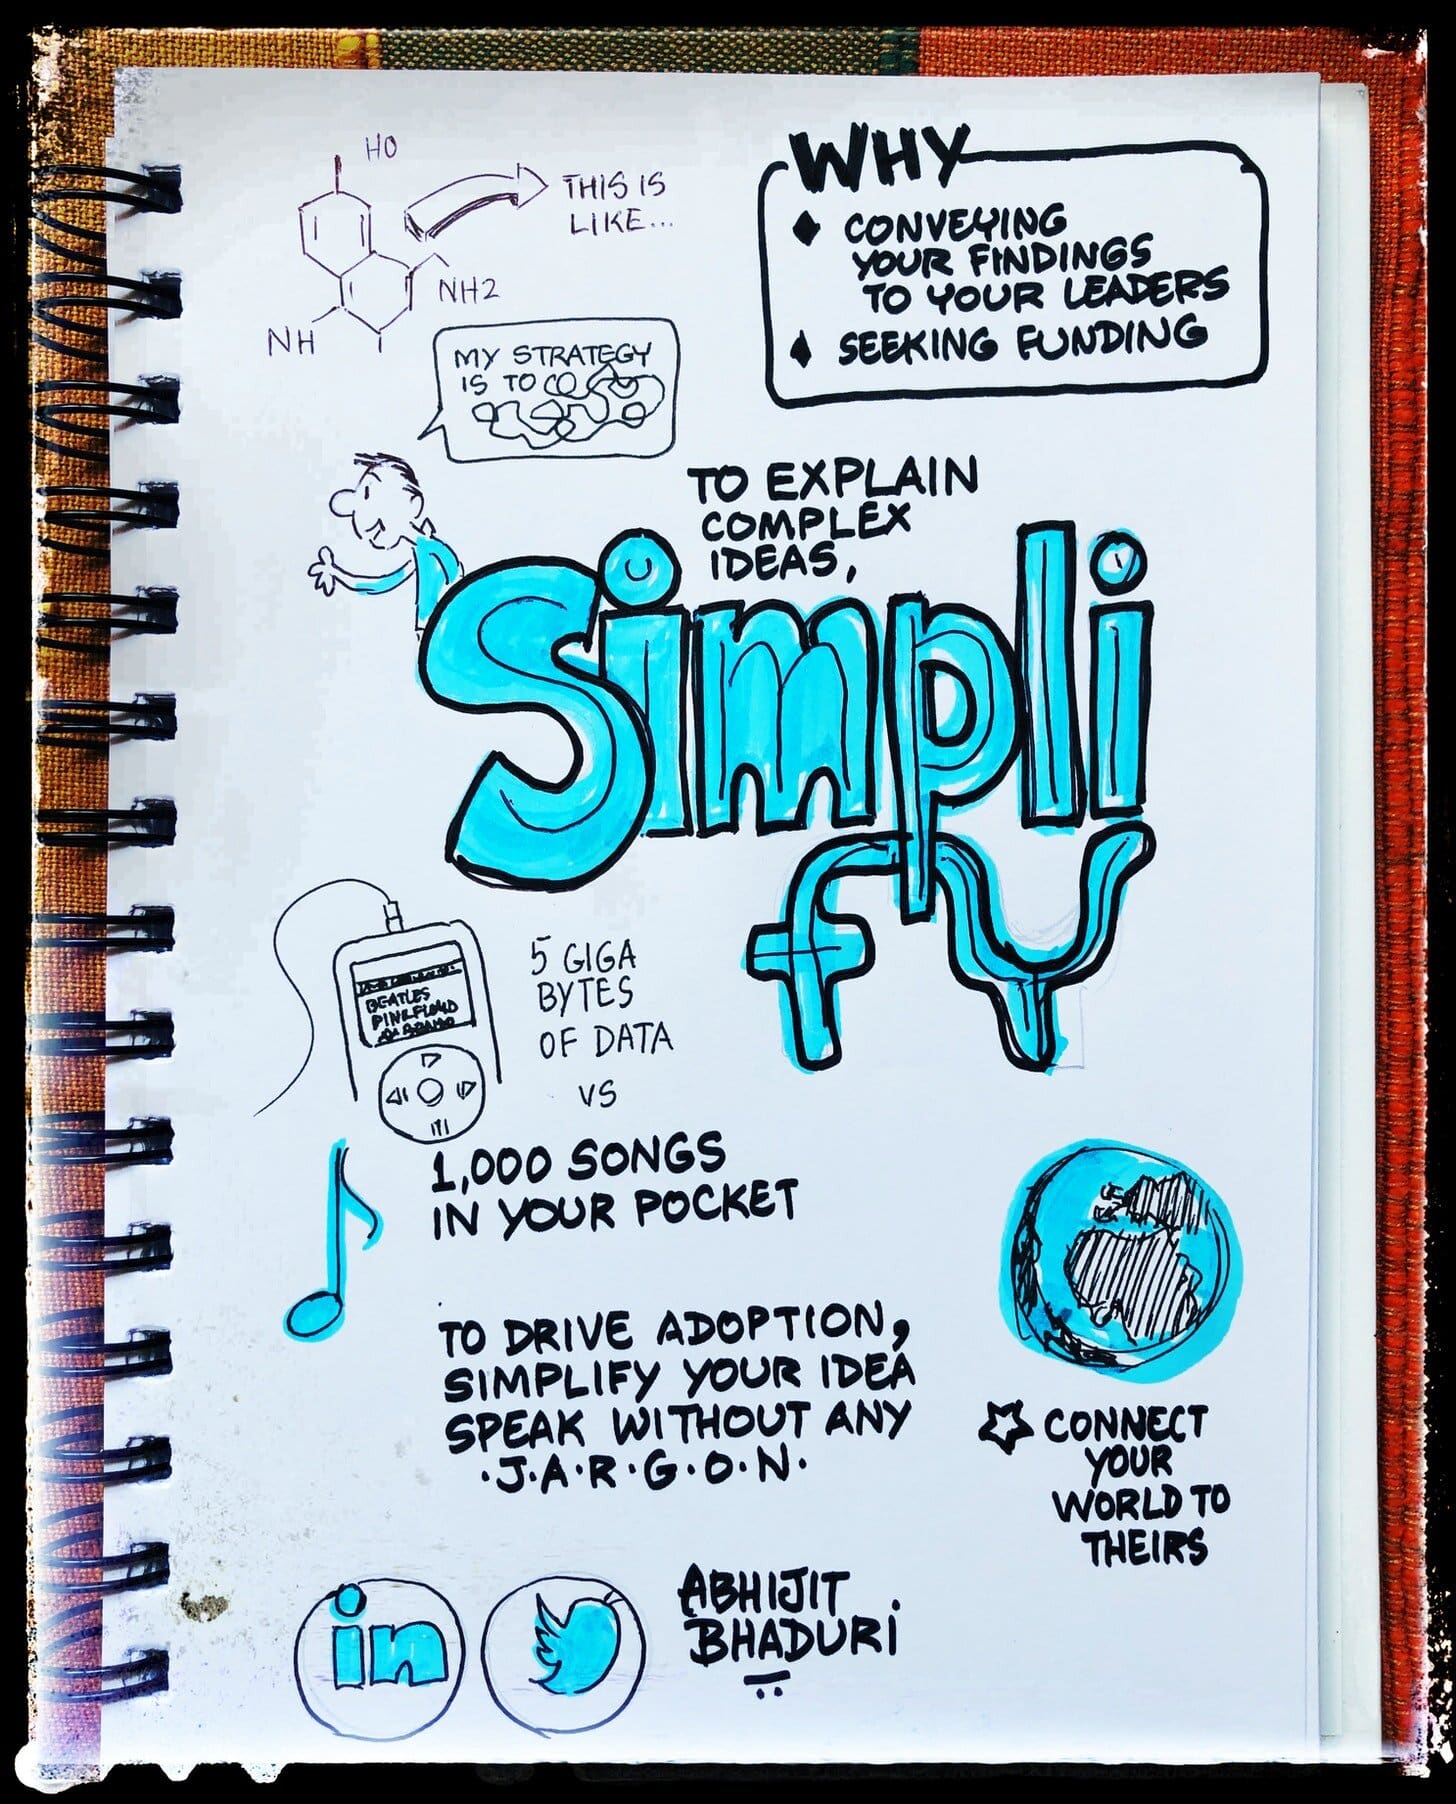 HO
THIS IS
LIKE...
NH2
NH
WHY
CONVEYING
YOUR FINDINGS
TO YOUR LEADERS
SEEKING FUNDING
MY STRATEGY
IS TO CO
TO EXPLAIN
COMPLEX
IDEAS,
Simpli
fy
BEATLES
PINK FLOYD
5 GIGA
BYTES
OF DATA
VS
1,000 SONGS
IN YOUR POCKET
TO DRIVE ADOPTION,
SIMPLIFY YOUR IDEA
SPEAK WITHOUT ANY
·J·A·R·G·O·N·
CONNECT
YOUR
WORLD TO
THEIRS
in
ABHIJIT
BHADURI